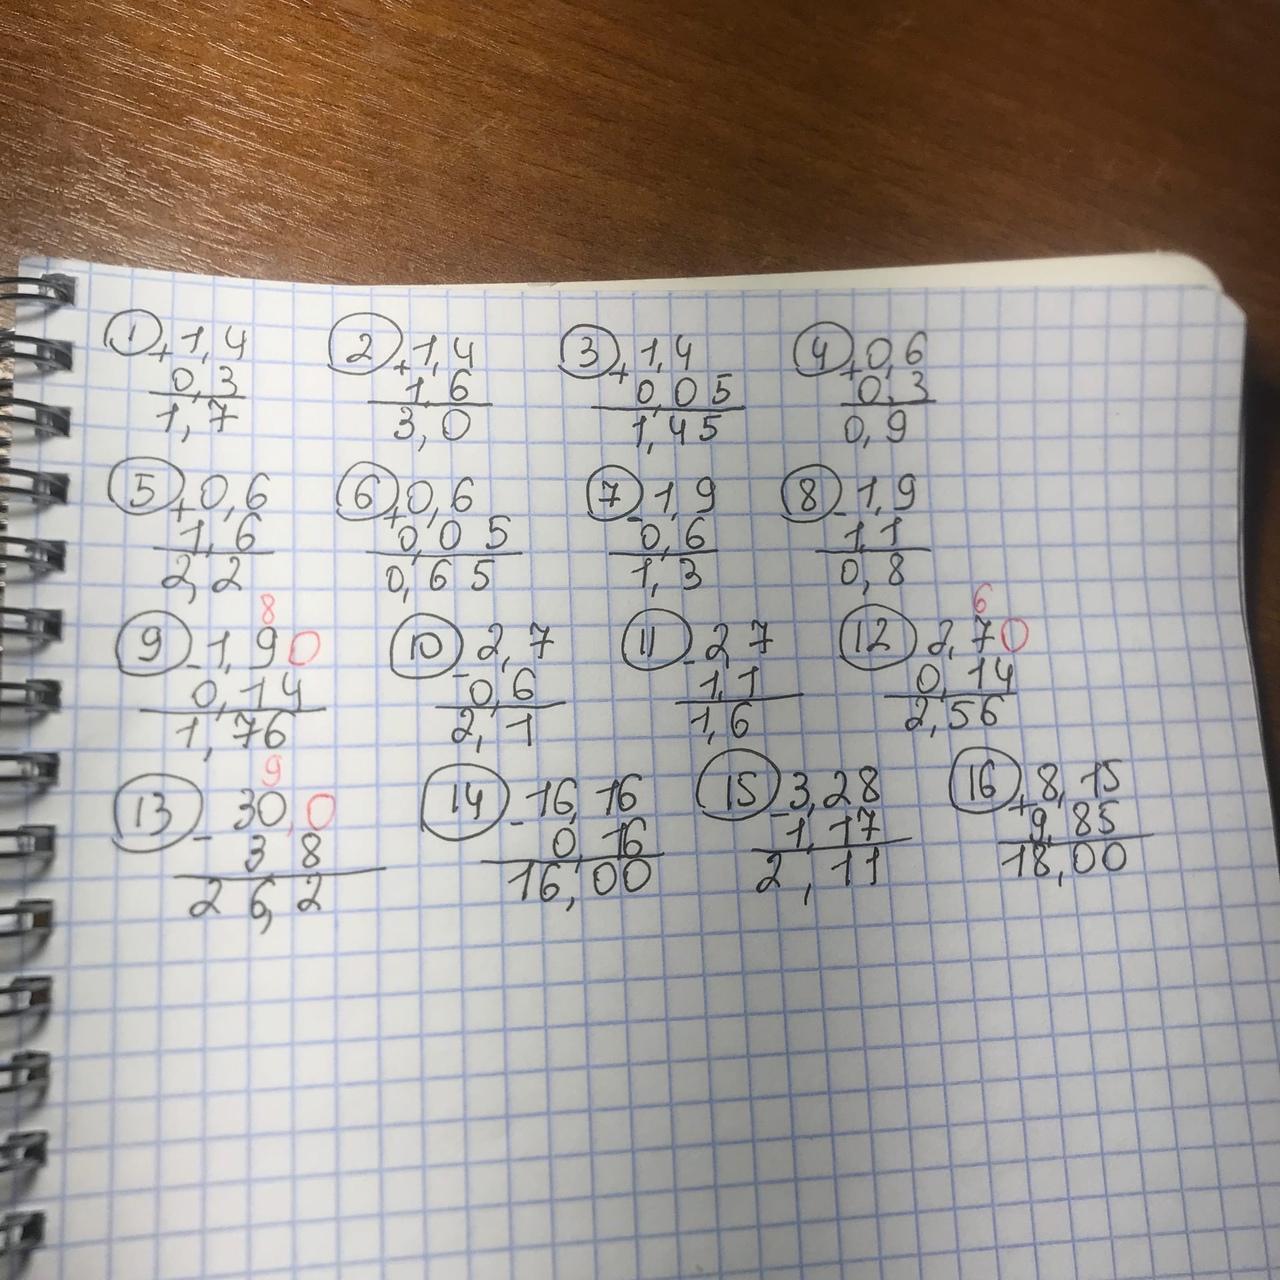 1 + 1,4 2 + 1,4 3 + 1,4 4 + 0,6
0,3 1,6 0,05 0,3
1,7 3,0 1,45 0,9
5 + 0,6 6 + 0,6 7 - 1,9 8 - 1,9
1,6 0,05 0,6 1,1
2,2 0,65 1,3 0,8
8 6
9 - 1,90 10 - 2,7 11 - 2,7 12 2,70
0,14 0,6 1,1 0,14
1,76 2,1 1,6 2,56
9
13 - 30,0 14 - 16,16 15 - 3,28 16 + 8,15
3 8 0 16 1,17 9,85
26,2 16,00 2,11 18,00